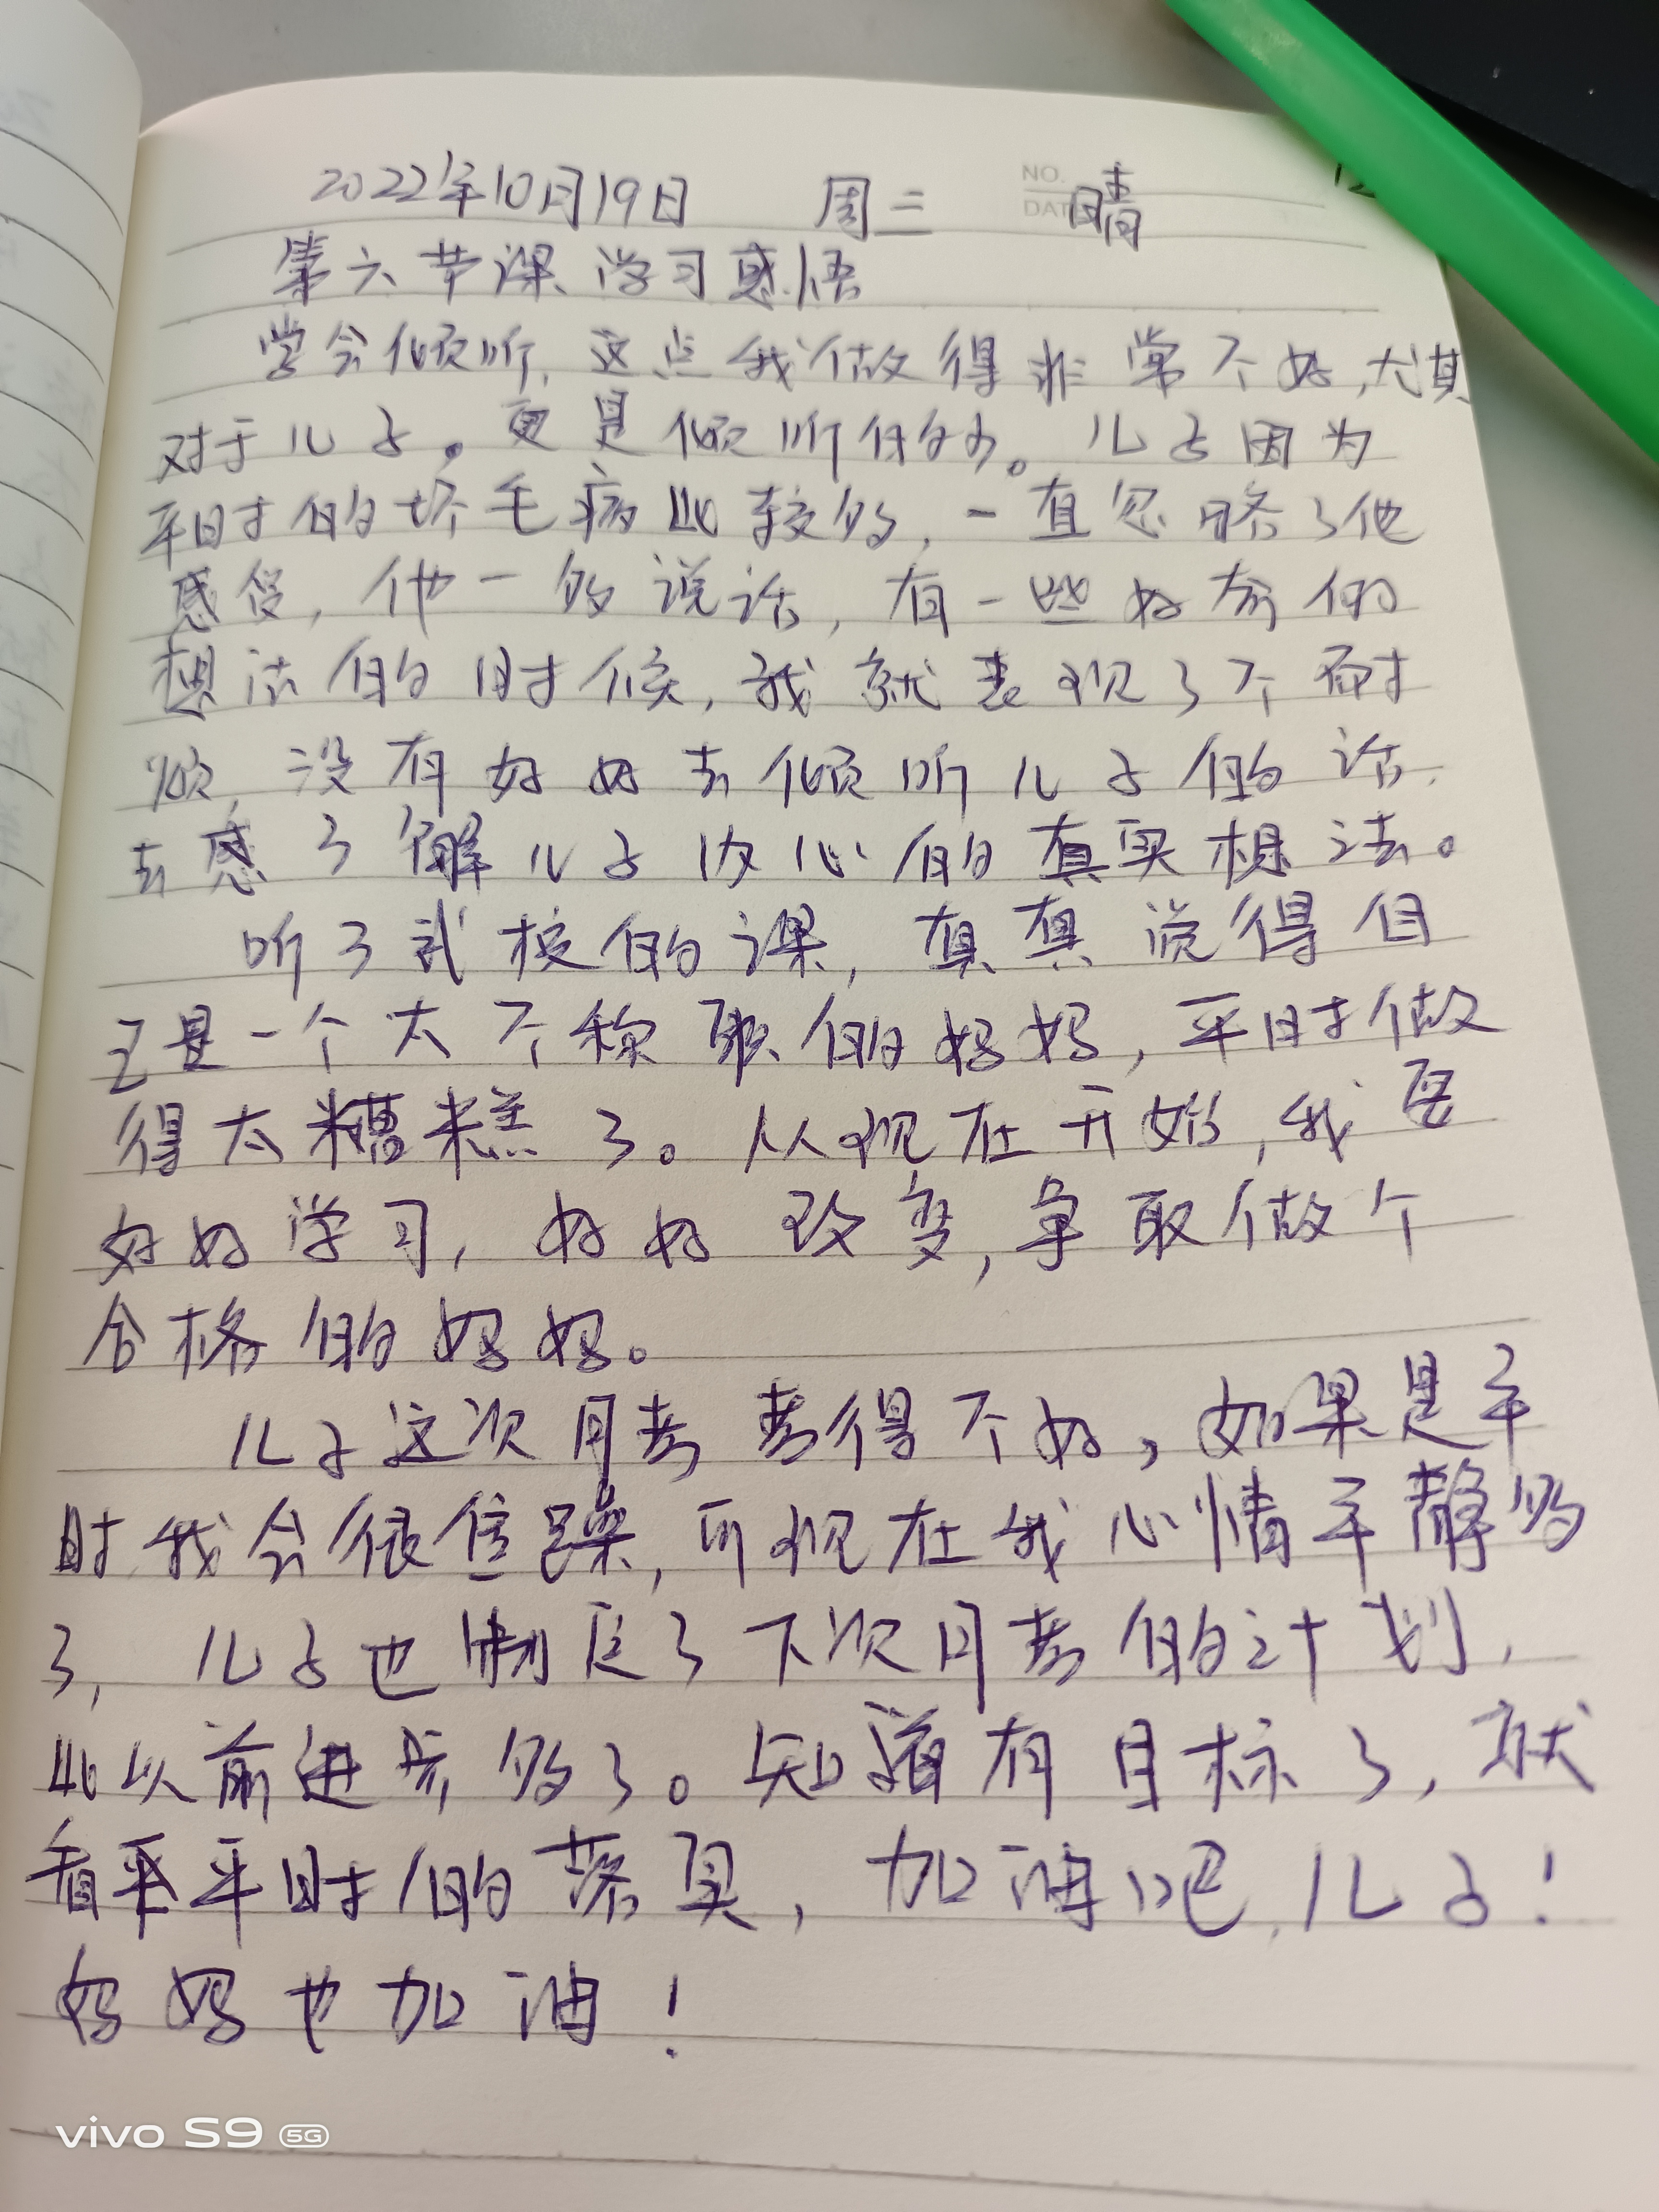 NO.
DATE
2022年10月19日 周三 晴
第六节课学习感悟
学会倾听,这点我做得非常不好,尤其
对于儿子。更是倾听的少。儿子因为
平时的坏毛病比较多,一直忽略了他
感受,他一多说话,有一些好奇的
想法的时候,我就表现了不耐
烦,没有好好去倾听儿子的话,
去感了解儿子内心的真实想法。
听了武校的课,真真说得自
己是一个太不称职的妈妈,平时做
得太糟糕了。从现在开始,我要
好好学习,好好改变,争取做个
合格的妈妈。
儿子这次月考考得不好,如果是平
时我会很焦躁,可现在我心情平静多
了,儿子也制定了下次月考的计划,
比以前进步多了。知道有目标了,就
看平平时的落具,加油吧,儿子!
妈妈也加油!
vivo S9 5G